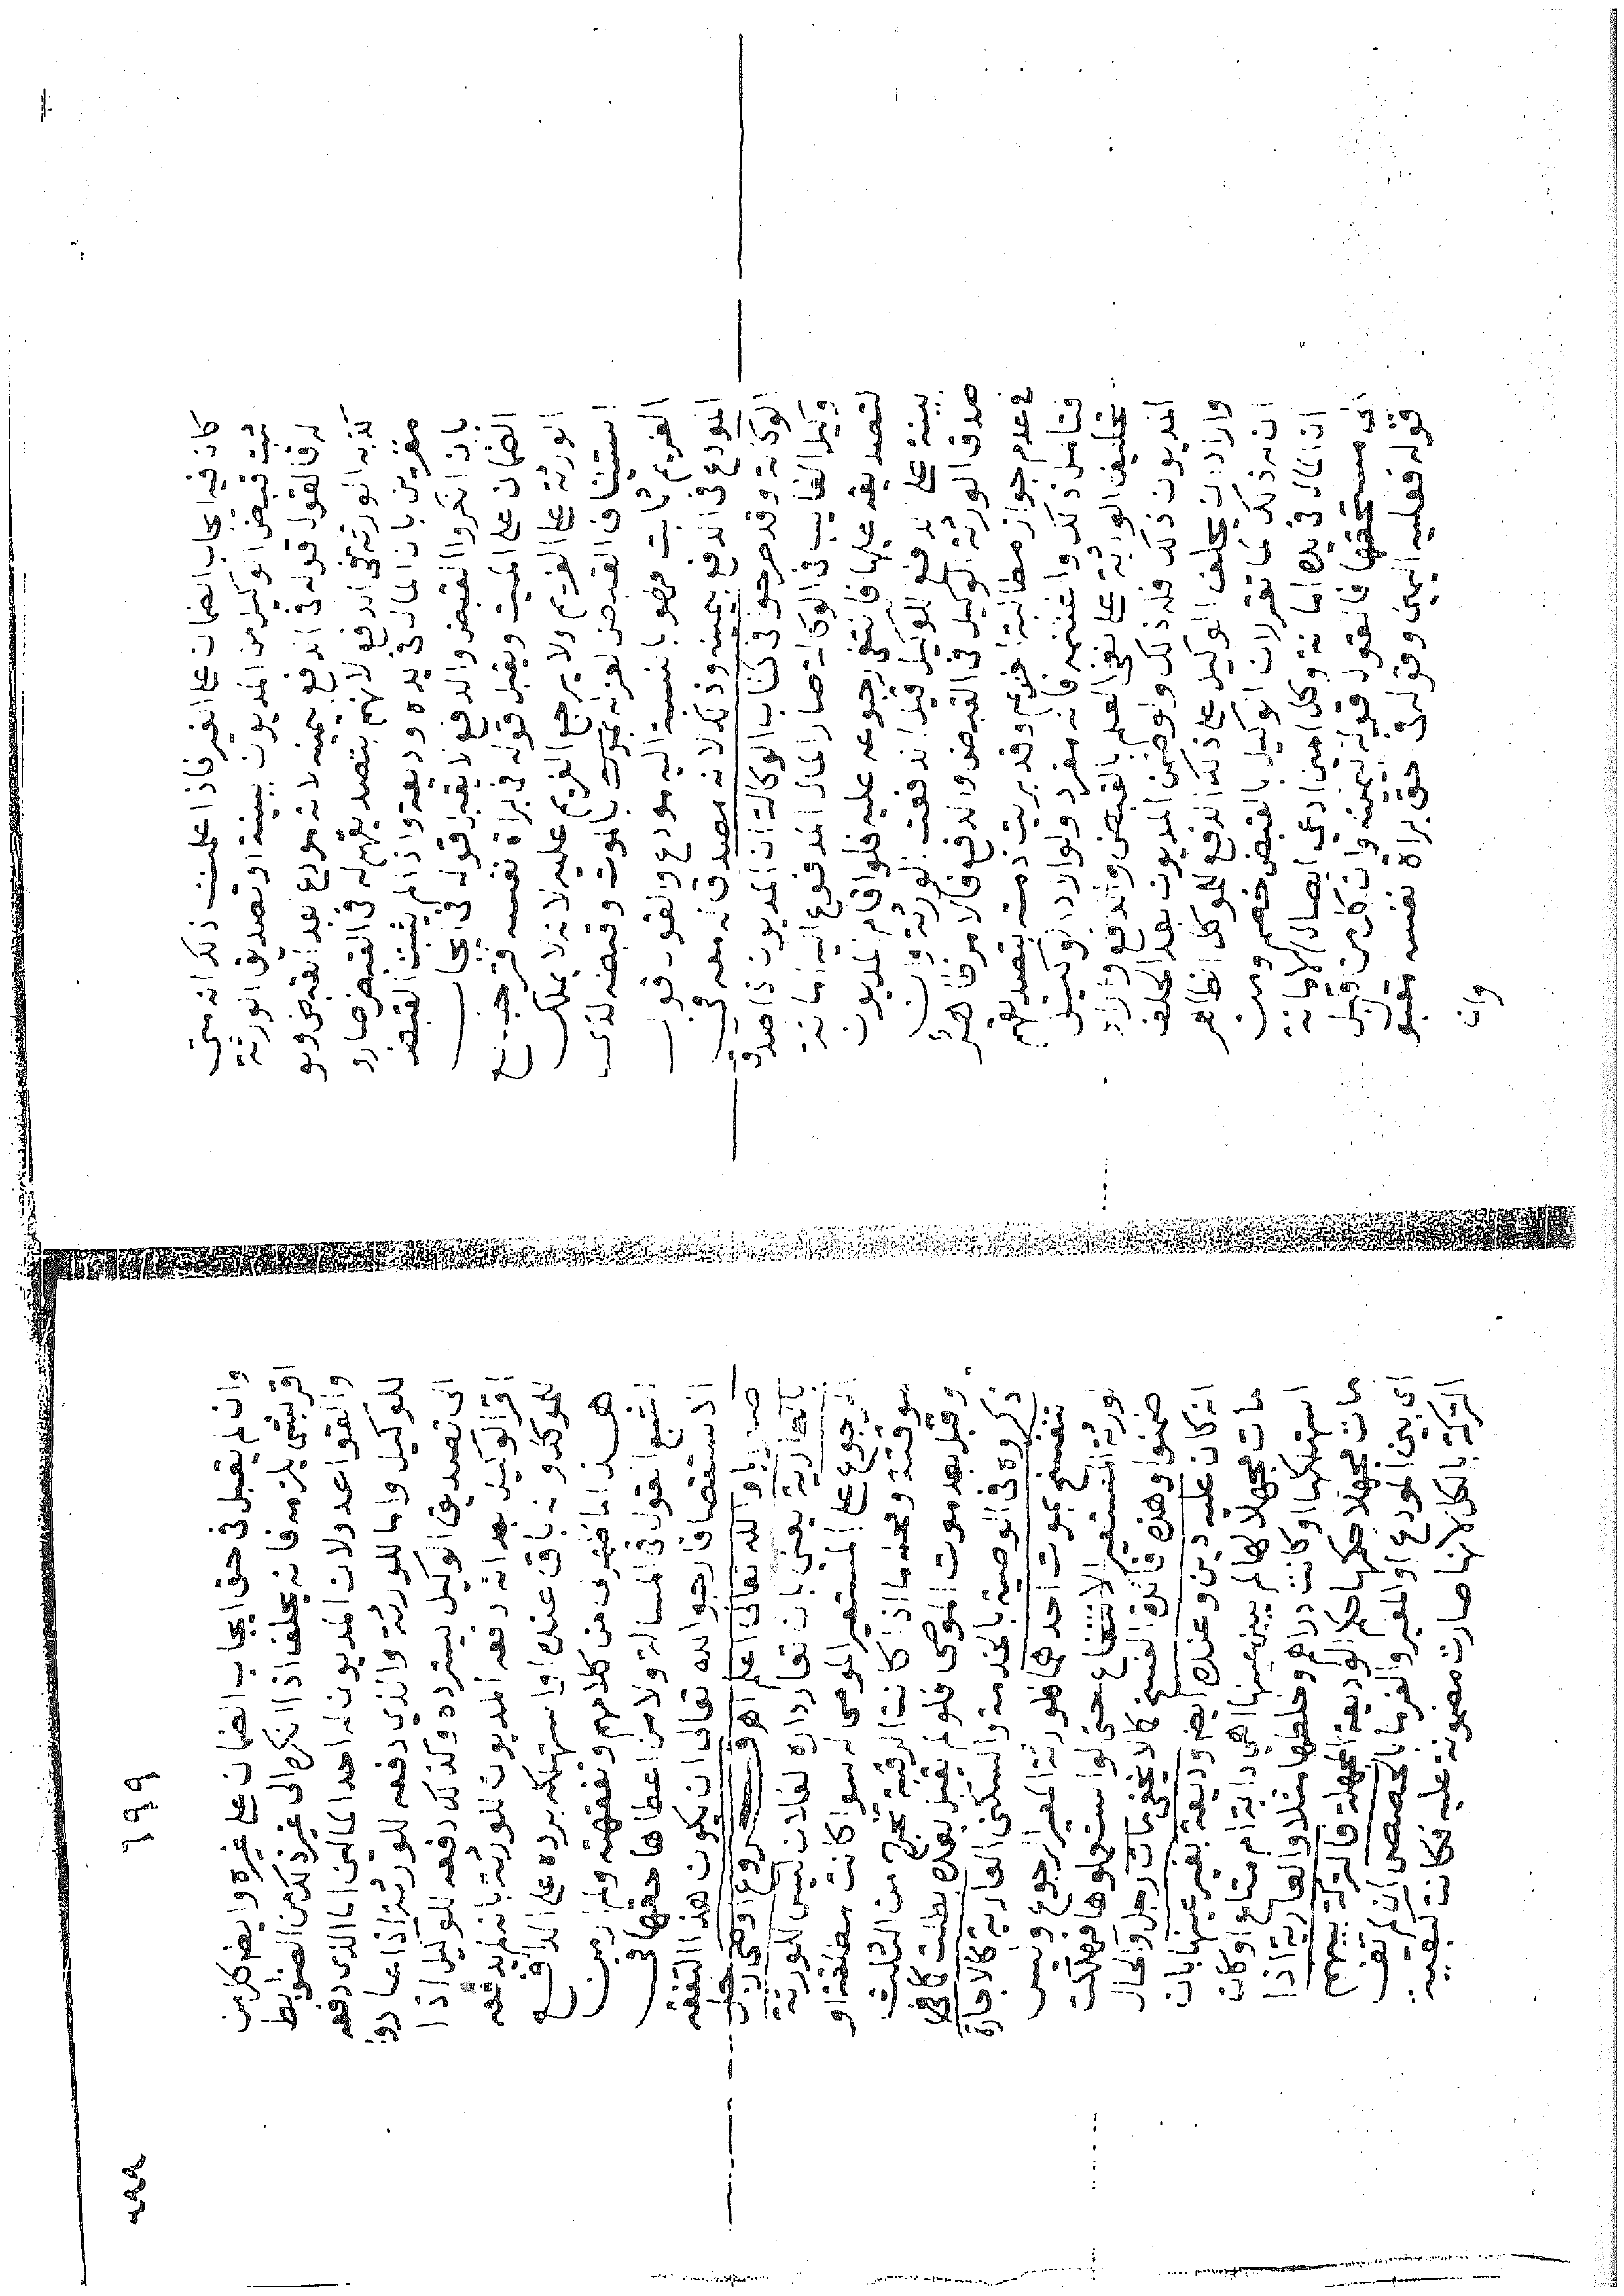 كان فيه ايجاب الضمان على الغير فاذا علمت ذلك انه متى
ثبت قبض الوكيل من المديون ببينة او تصديق الورثة
له فالقول قوله في الدفع بيمينه لانه مودع بعد القبض ولو
كذبه الورثة في الدفع لانهم بتصديقهم له في القبض صاروا
مقرين بان المال في يده وديعة واذا لم يثبت القبض
بان انكروا القبض والدفع لا يقبل قوله في ايجاب
الضمان على الميت ويقبل قوله في براة نفسه فترجع
الورثة على الغريم ولا يرجع الغريم عليه لانه لا يملك
استيناف القبض لعزله بالموت وقبضه لذى
الغريم ثابت فهو بالنسبة اليه مودع والقول قول
المودع في الدفع بيمينه وذلك لانه مصدق له معه في
الوكالة وقد صرحو في كتاب الوكالة ان المديون اذا صدق
وكيل الغايب في الوكالة صار المال المدفوع اليه امانة
لتصديقه عليها فانتفى رجوعه عليه فلو اقام المديون
بينة على دفع للوكيل قبل اندفعت الورثة وان
صدق الورثة الوكيل في القبض والدفع فالامر ظاهر
في عدم جواز مطالبة الغريم وقد بريت ذمته بتصديقهم
فتامل ذلك واغتنمه فانه مفرد ولو اراد الوكيل
تحليف الوارثة على نفى العلم بالقبض والدفع واراد
المديون ذلك فله ذلك ولو ضمن المديون بعد الحلف
واراد ان يحلف الوكيل على ذلك الدفع للموكل الظاهر
ان له ذلك لما تقرر ان الوكيل بالقبض خصم ومن
ان المال في يده امانة وكل امين ادعى ايصال الامانة
الى مستحقها فالقول قوله بيمينه وان كل من قبل
قوله فعليه اليمين وقوله في حق براة نفسه مقبو
وان
١٩٩
٢٩٩
وان لم يقبل في حق ايجاب الضمان على غيره وايض كل من
اقر بشى يلزمه فانه يحلف اذا انكره الى غير ذلك من الضوابط
والقواعد ولان المديون له احد المالين اما الذى دفعه
للوكيل واما للورثة والذي دفعه للورثة اذا عادوا
الى تصديق الوكيل يسترده وكذلك دفعه للوكيل اذا
اقر الوكيل بعد انه دفعه المديون للورثة بانه لم يدفعه
للموكل وانه باق عنده او استهلكه يرده على الدافع
هذا ما ظهر لى من كلامهم وتفقهته ولم ار من
اشبع القول في المسالة ولا من اعطاها حقها في
الاستقصا فارجو الله تعالى ان يكون هذا التفقه
صوابا والله تعالى اعلم اهـ فروع اوصى رجل
بالعارية يعنى بان تعار داره لفلان ليس للورثة
الرجوع على المستعير الموصى له سوا كانت مطلقة او
موقتة ومحله ما اذا كانت الرقبة تخرج من الثلث
وقبل بعد موت الموصى فلو لم يقبل بعده بطلت كما
ذكروه في الوصية بالخدمة والسكنى العارية كالاجارة
تنفسخ بموت احدهما فلورثة المعير الرجوع وليس
لورثة المستعير الانتفاع حتى لو استعملوها فهلكت
ضمنوا وهذه فائدة الفسخ كما لا يخفى مات رجل والحال
انه كان عليه دين وعنده ايضم وديعة بغير عينها بان
مات مجهلا لها لم يبين عينها اهي دابة ام متاع او كان
استهلكها او كانت دراهم وخلطها مثلا والعارية اذا
مات مجهلا حكمها حكم الوديعة المجهلة فالتركة بينهم
اى بين المودع او المعير والغرما بالحصص ان لم تف
التركة بالكل لانها صارت مضمونة عليه فكانت كبقية